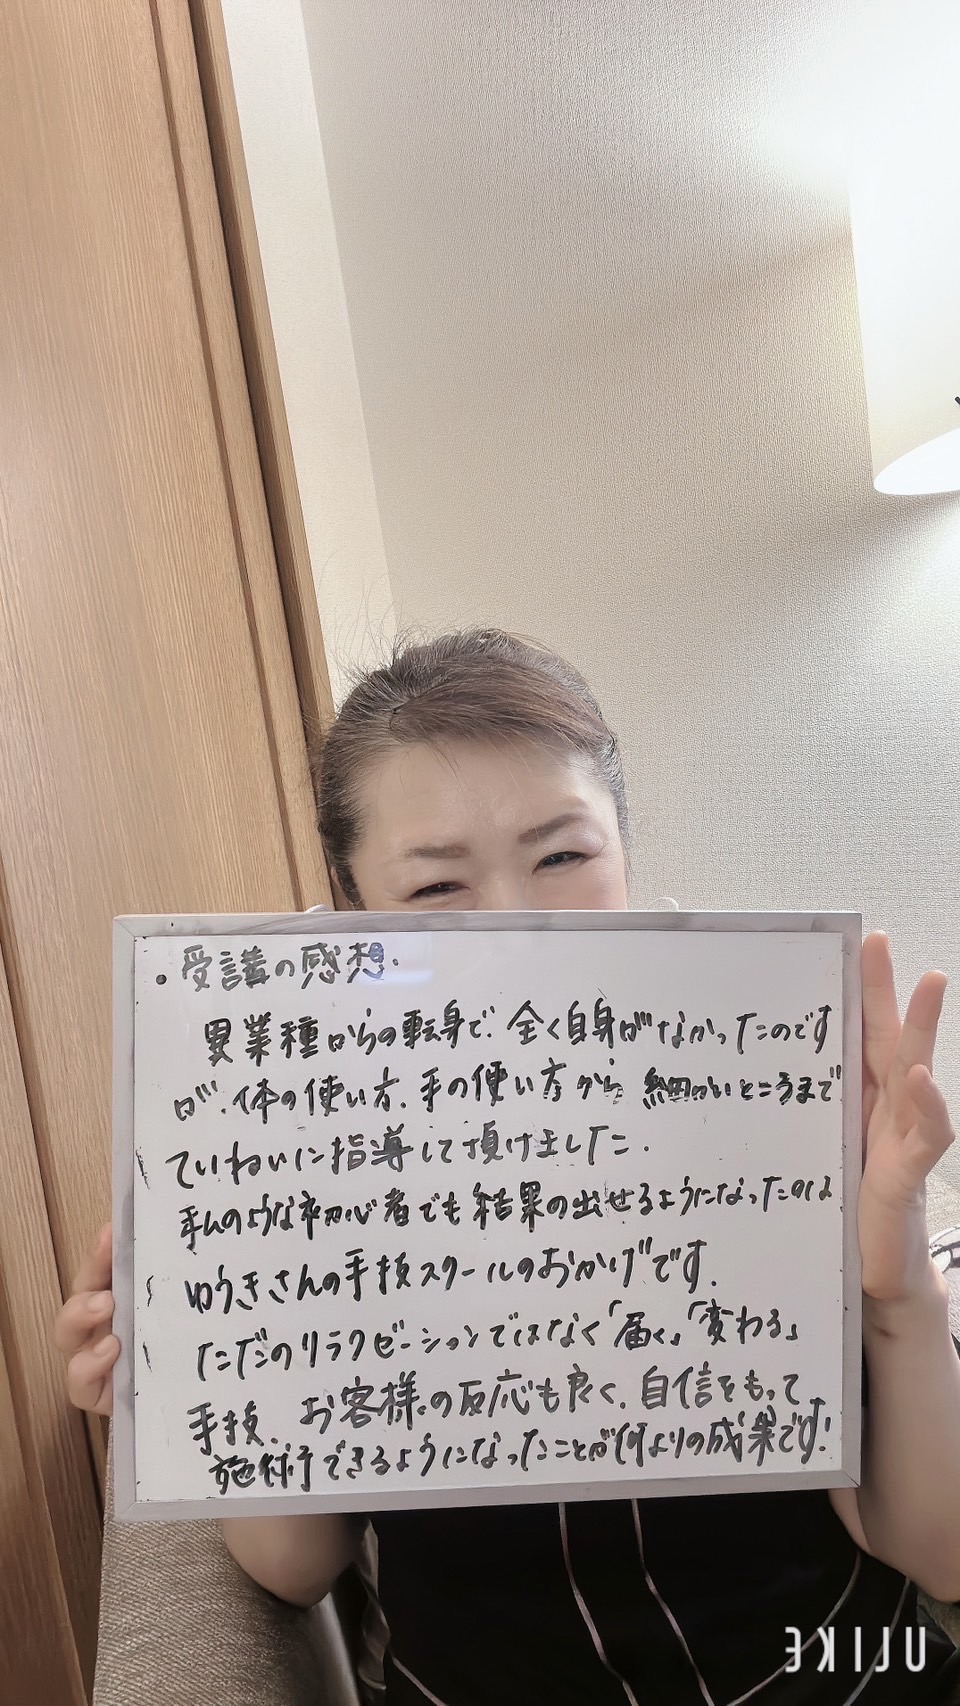 ・受講の感想.
異業種からの転身で、全く自身がなかったのです
が、体の使い方、手の使い方から 細かいところまで
ていねいに指導して頂けました.
私のような初心者でも結果の出せるようになったのは
ゆうきさんの手技スクールのおかげです.
ただのリラクゼーションではなく「届く」「変わる」
手技、お客様の反応も良く、自信をもって
施術できるようになったことが何よりの成果です!
ULIKE